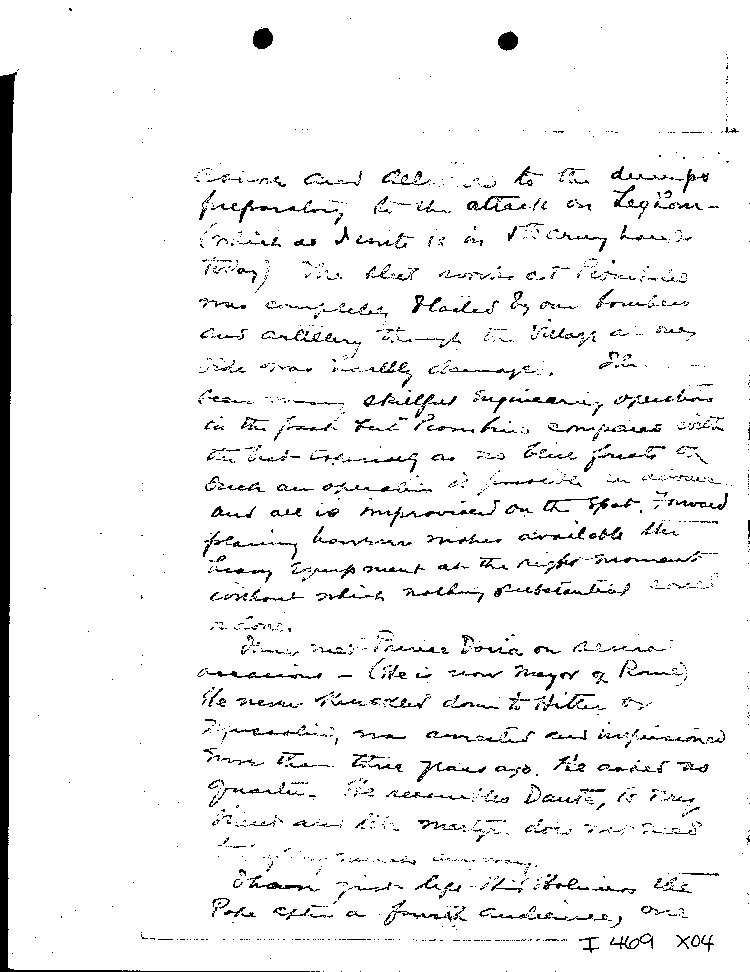 and to the dumps
preparatory to the attack on Leghorn -
(which as I write is in 5th Army hands
today) The
was completely by our bombers
and artillery through the village on one
side was damaged.
been many skillful Engineering operations
in the past but Piombino compares with
the best especially as no blue prints for
such an operation is possible in advance
and all is improvised on the spot. Forward
planning however makes available the
heavy equipment at the right moment
without which nothing substantial could
done.
Have met Prince Doria on several
occasions - (He is now Mayor of Rome)
He never Kneeled down to Hitler or
Mussolini, was arrested and imprisoned
more than three years ago. He asked no
quarter. He resembles Dante, to my
and like martyr does not need
anyway.
I have just left His Holiness the
Pope after a fourth audience, one
I 469 X04